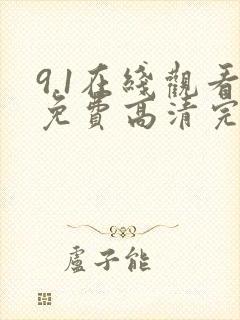 9.1在綫觀看
免費高清完
盧子能